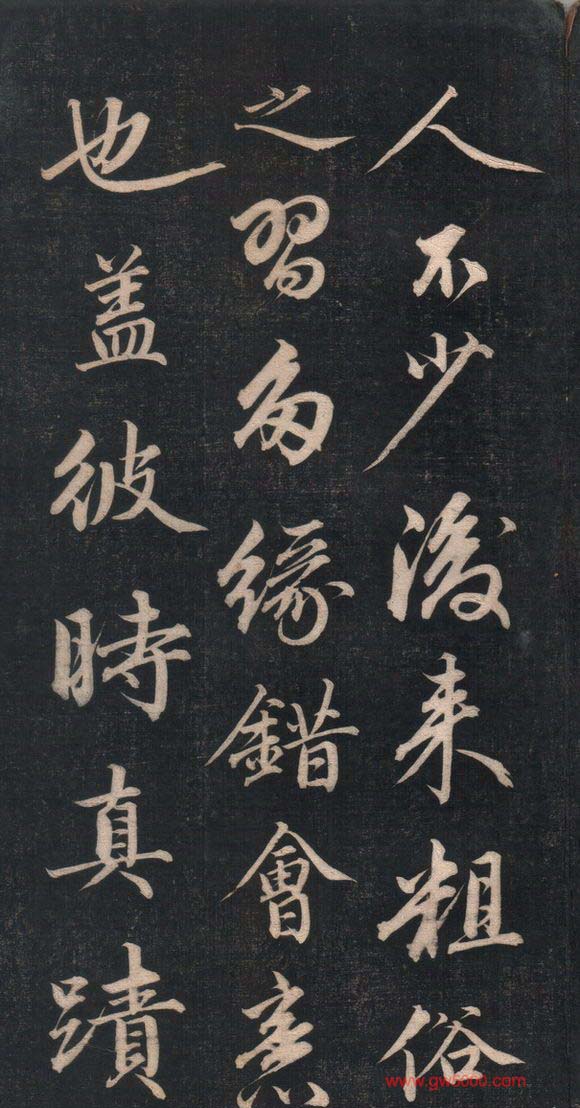 人不少後来粗俗
之習多緣錯會意
也盖彼時真蹟
www.gw5000.com